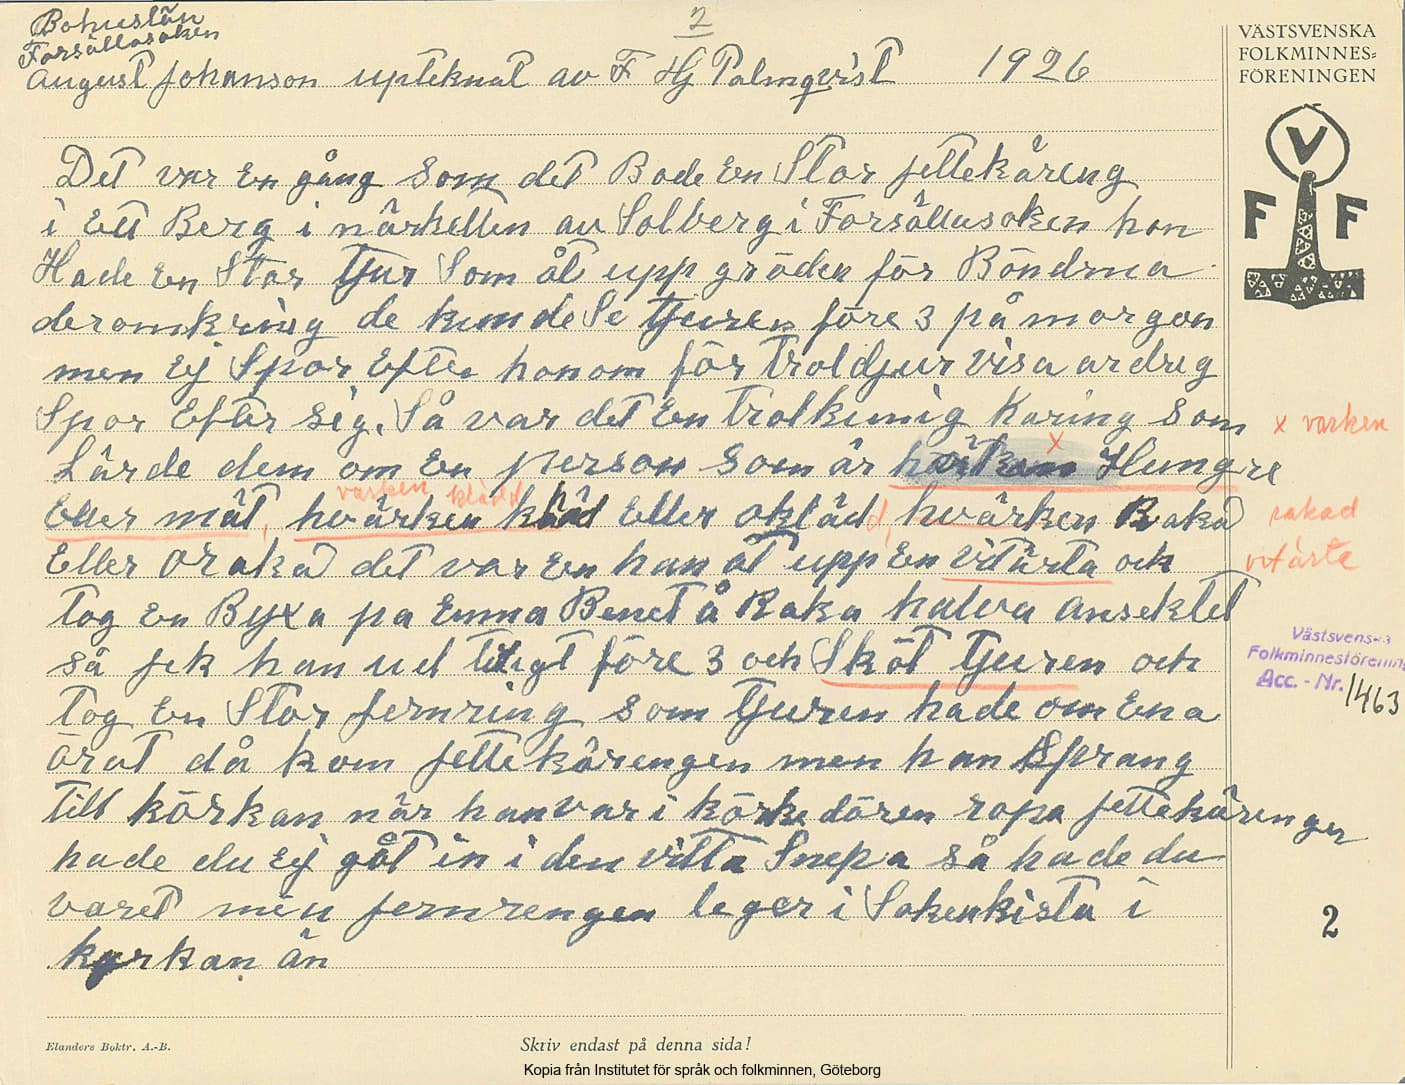 2
Bohuslän
Forsällasoken
August Johanson upteknat av F Hj Palmqvist 1926
VÄSTSVENSKA
FOLKMINNES-
FÖRENINGEN
V
F F
Det var En gång som det Bode En Stor jettekäring
i Ett Berg i närhetten av Solberg i Forsällasoken hon
Hade En Stor Tjur Som åt upp gröden för Böndrna
deromkring de kunde Se Tjuren före 3 på morgon
men Ej Spor Efter honom för troldjur visa ardrig
Spor Efter sig. Så var det En trolkunig Käring som
Lärde dem om En person som är Hungre
x
x varken
Eller mät, hvärken kläd Eller oklädd, hvärken Rakad
varken klädd
rakad
Eller orakad det var En han åt upp En vitärta och
vit ärta
tog En Byxa pa Emna Benet å Raka halva ansektet
så jek han ud tidigt före 3 och Sköt Tjuren och
tog En Stor jernring som Tjuren hade om Ena
örat då kom jettekärengen men han Sprang
till körkan när han var i körkedören ropa jettekärengen
hade du Ej gåt in i den vitta Snepa så hade du
varet min jernrengen leger i Sokenkista i
kyrkan än
Västsvenska
Folkminnesförening
Acc. - Nr. 1463
2
Elanders Boktr. A.-B.
Skriv endast på denna sida!
Kopia från Institutet för språk och folkminnen, Göteborg